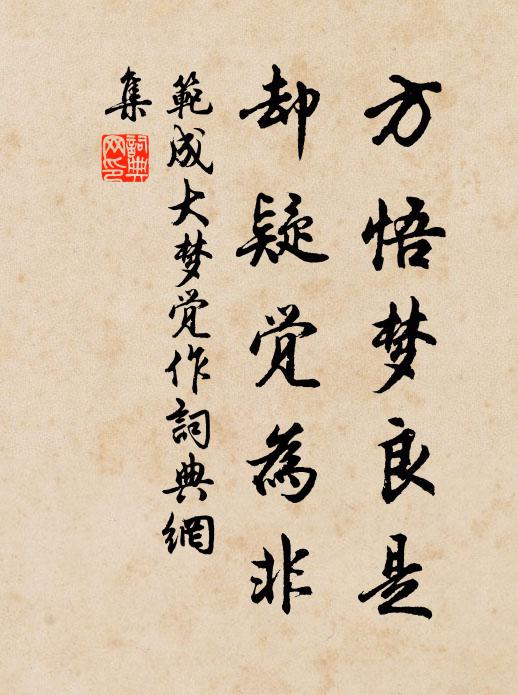 方悟梦良是
却疑觉為非
範成大梦觉作詞典網
集
詞典
网印